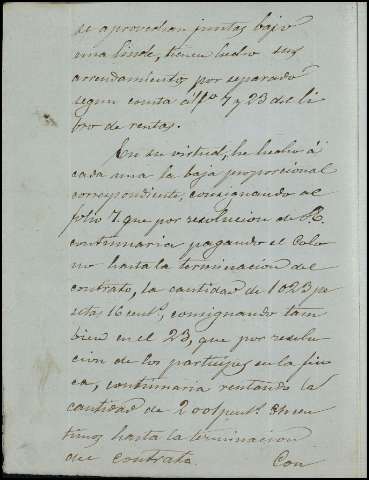 se aprovechan juntas bajo
una linde, tienen hecho sus
arrendamiento por separado
segun consta al fº 7 y 23 del li
bro de rentas.
En su virtud, he hecho á
cada una la baja proporcional
correspondiente, consignando al
folio 7 que por resolucion de
continuaria pagando el Colo
no hasta la terminacion del
contrato, la cantidad de 1023 pe
setas 16 cents, consignando tam
bien en el 23, que por resolu
cion de los participes en la fin
ca, continuaria rentando la
cantidad de 2001 cen
timos hasta la terminacion
del contrato. Con